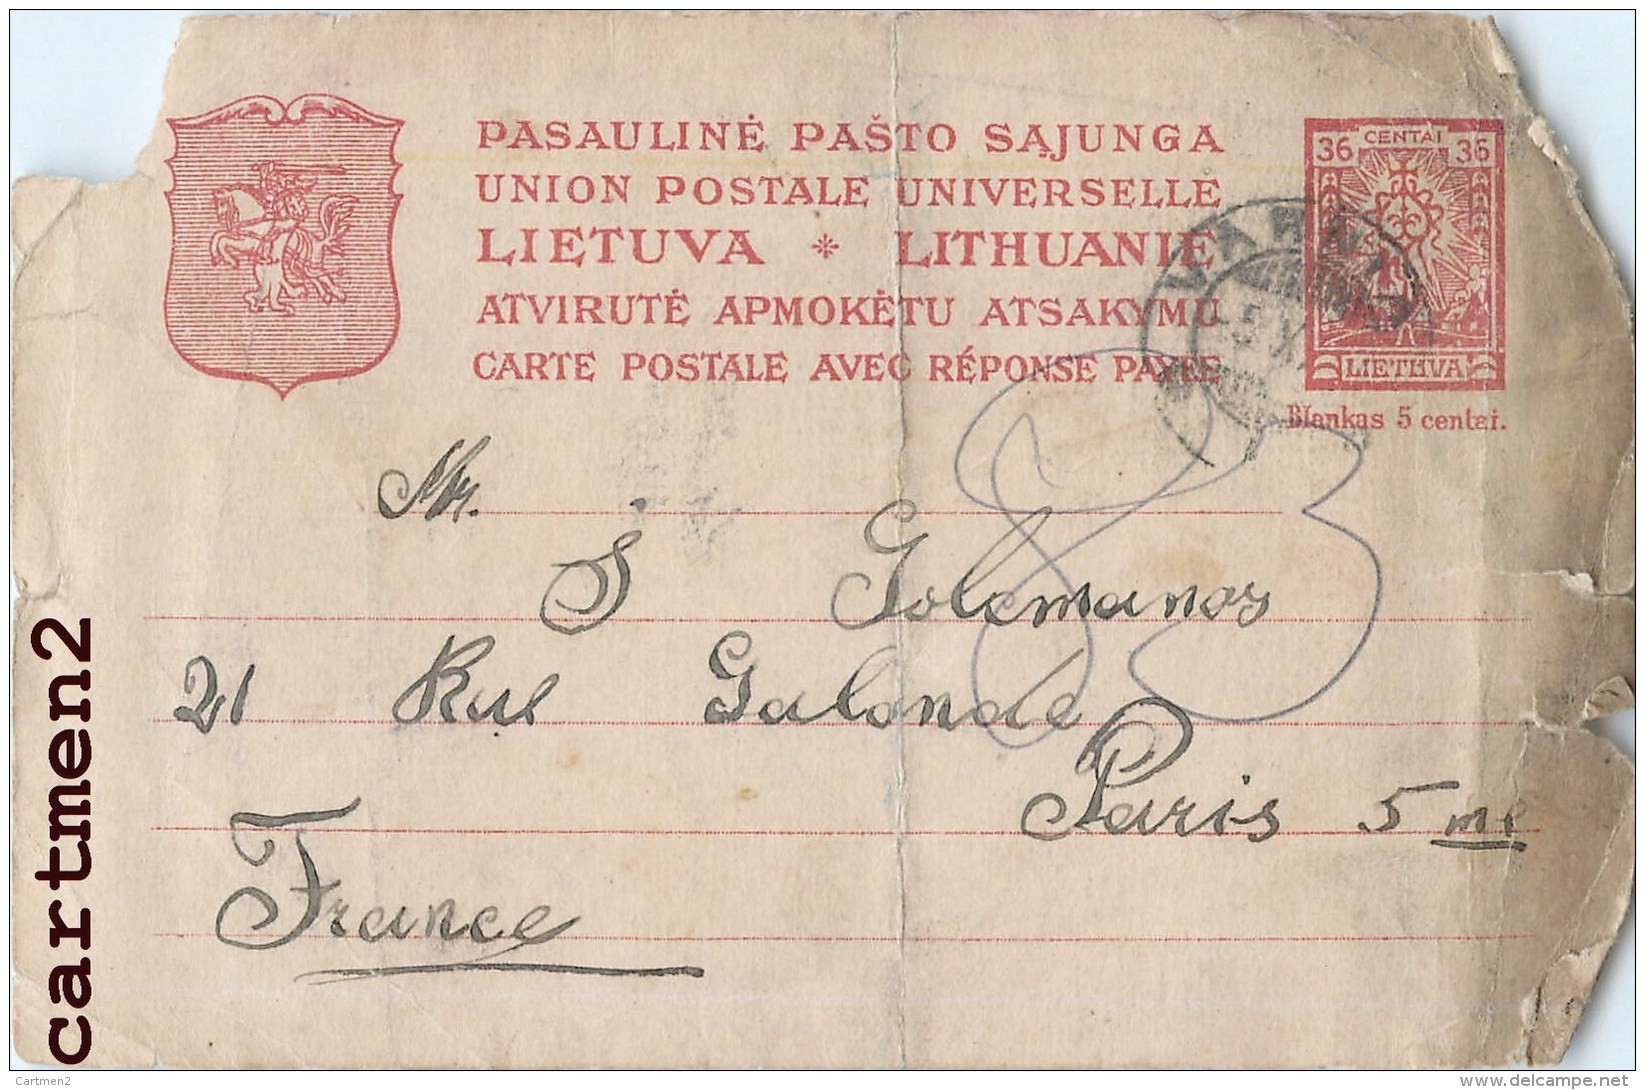 PASAULINĖ PAŠTO SĄJUNGA
UNION POSTALE UNIVERSELLE
LIETUVA * LITHUANIE
ATVIRUTĖ APMOKĖTU ATSAKYMU
CARTE POSTALE AVEC RÉPONSE PAYÉE
36 CENTAI 36
LIETUVA
Blankas 5 centai.
VARNIAI
83
Mr.
S Golemanos
21 Rue Galande
Paris 5 me
France
cartmen2
Cartmen2
delcampe.net